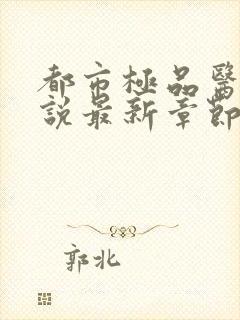 都市極品醫
說最新章節
郭北